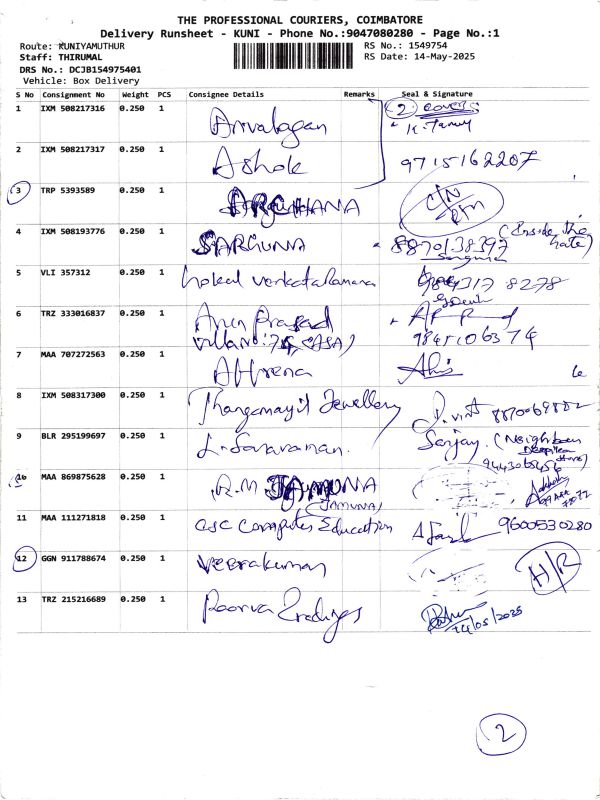 THE PROFESSIONAL COURIERS, COIMBATORE
Delivery Runsheet - KUNI - Phone No.:9047080280 - Page No.:1
Route: KUNIYAMUTHUR
RS No.: 1549754
Staff: THIRUMAL
RS Date: 14-May-2025
DRS No.: DCJB154975401
Vehicle: Box Delivery
S No Consignment No Weight PCS Consignee Details Remarks Seal & Signature
1 IXM 508217316 0.250 1 Arivalagan 2 covers
2 IXM 508217317 0.250 1 Ashok 9715162207
3 TRP 5393589 0.250 1 ARCHANA C/N
4 IXM 508193776 0.250 1 SARGUNA 8870138397 (Inside the Gate)
5 VLI 357312 0.250 1 Gokul Venkataramana 8278
6 TRZ 333016837 0.250 1 Arun Prasad
7 MAA 707272563 0.250 1
8 IXM 508317300 0.250 1 Thangamayil Jewellery
9 BLR 295199697 0.250 1 L. Saravanan. Sanjay. (Neighbour
10 MAA 869875628 0.250 1 R.M JAMUNA
(JAMUNA)
11 MAA 111271818 0.250 1 CSC Computer Education 9600530280
12 GGN 911788674 0.250 1 Veerakumar H/R
13 TRZ 215216689 0.250 1 Poorva Tradings
14/05/2025
2